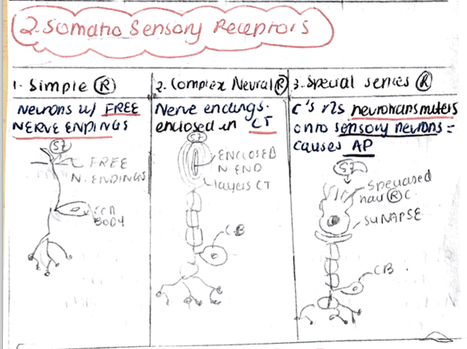 2. Somatic Sensory Receptors
1. Simple Ⓡ
Neurons w/ FREE
NERVE ENDINGS
ST
FREE
N. ENDINGS
CELL
BODY
2. Complex Neural Ⓡ
Nerve endings
enclosed in CT
ST
ENCLOSED
N END
layers CT
CB
3. Special senses Ⓡ
C's rls neurotransmitters
onto sensory neurons =
causes AP
ST
Specialised
Ⓡ C.
SYNAPSE
CB